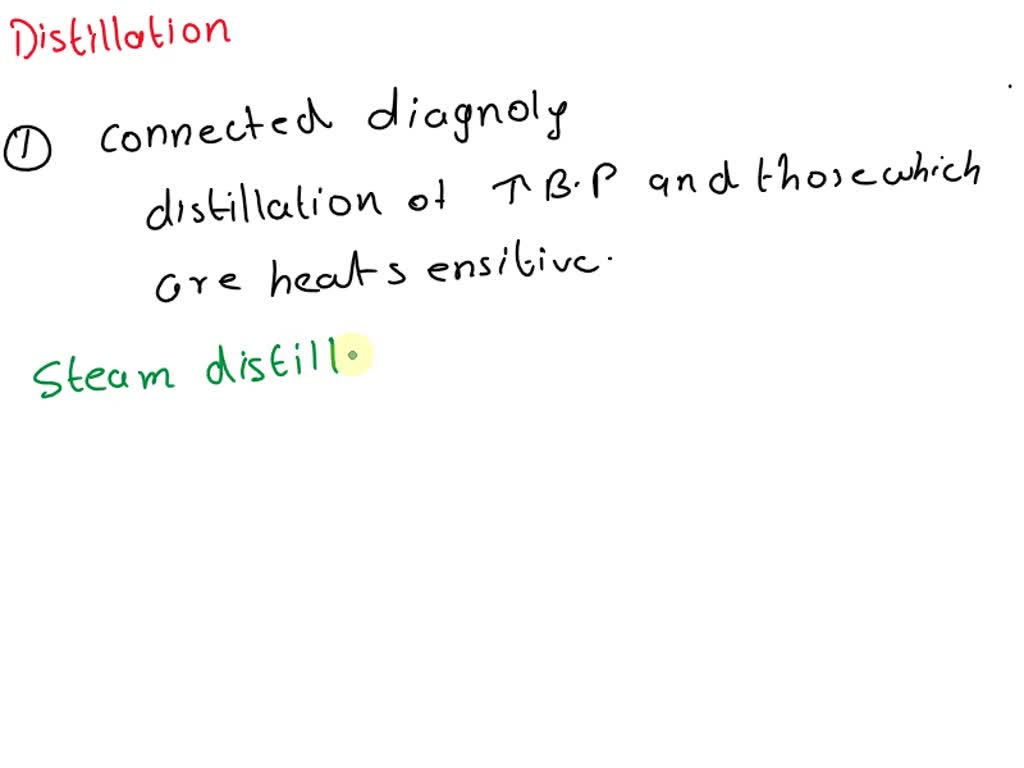 Distillation
① connected diagnoly
distillation of ↑ B.P and those which
are heat sensitive.
Steam distill